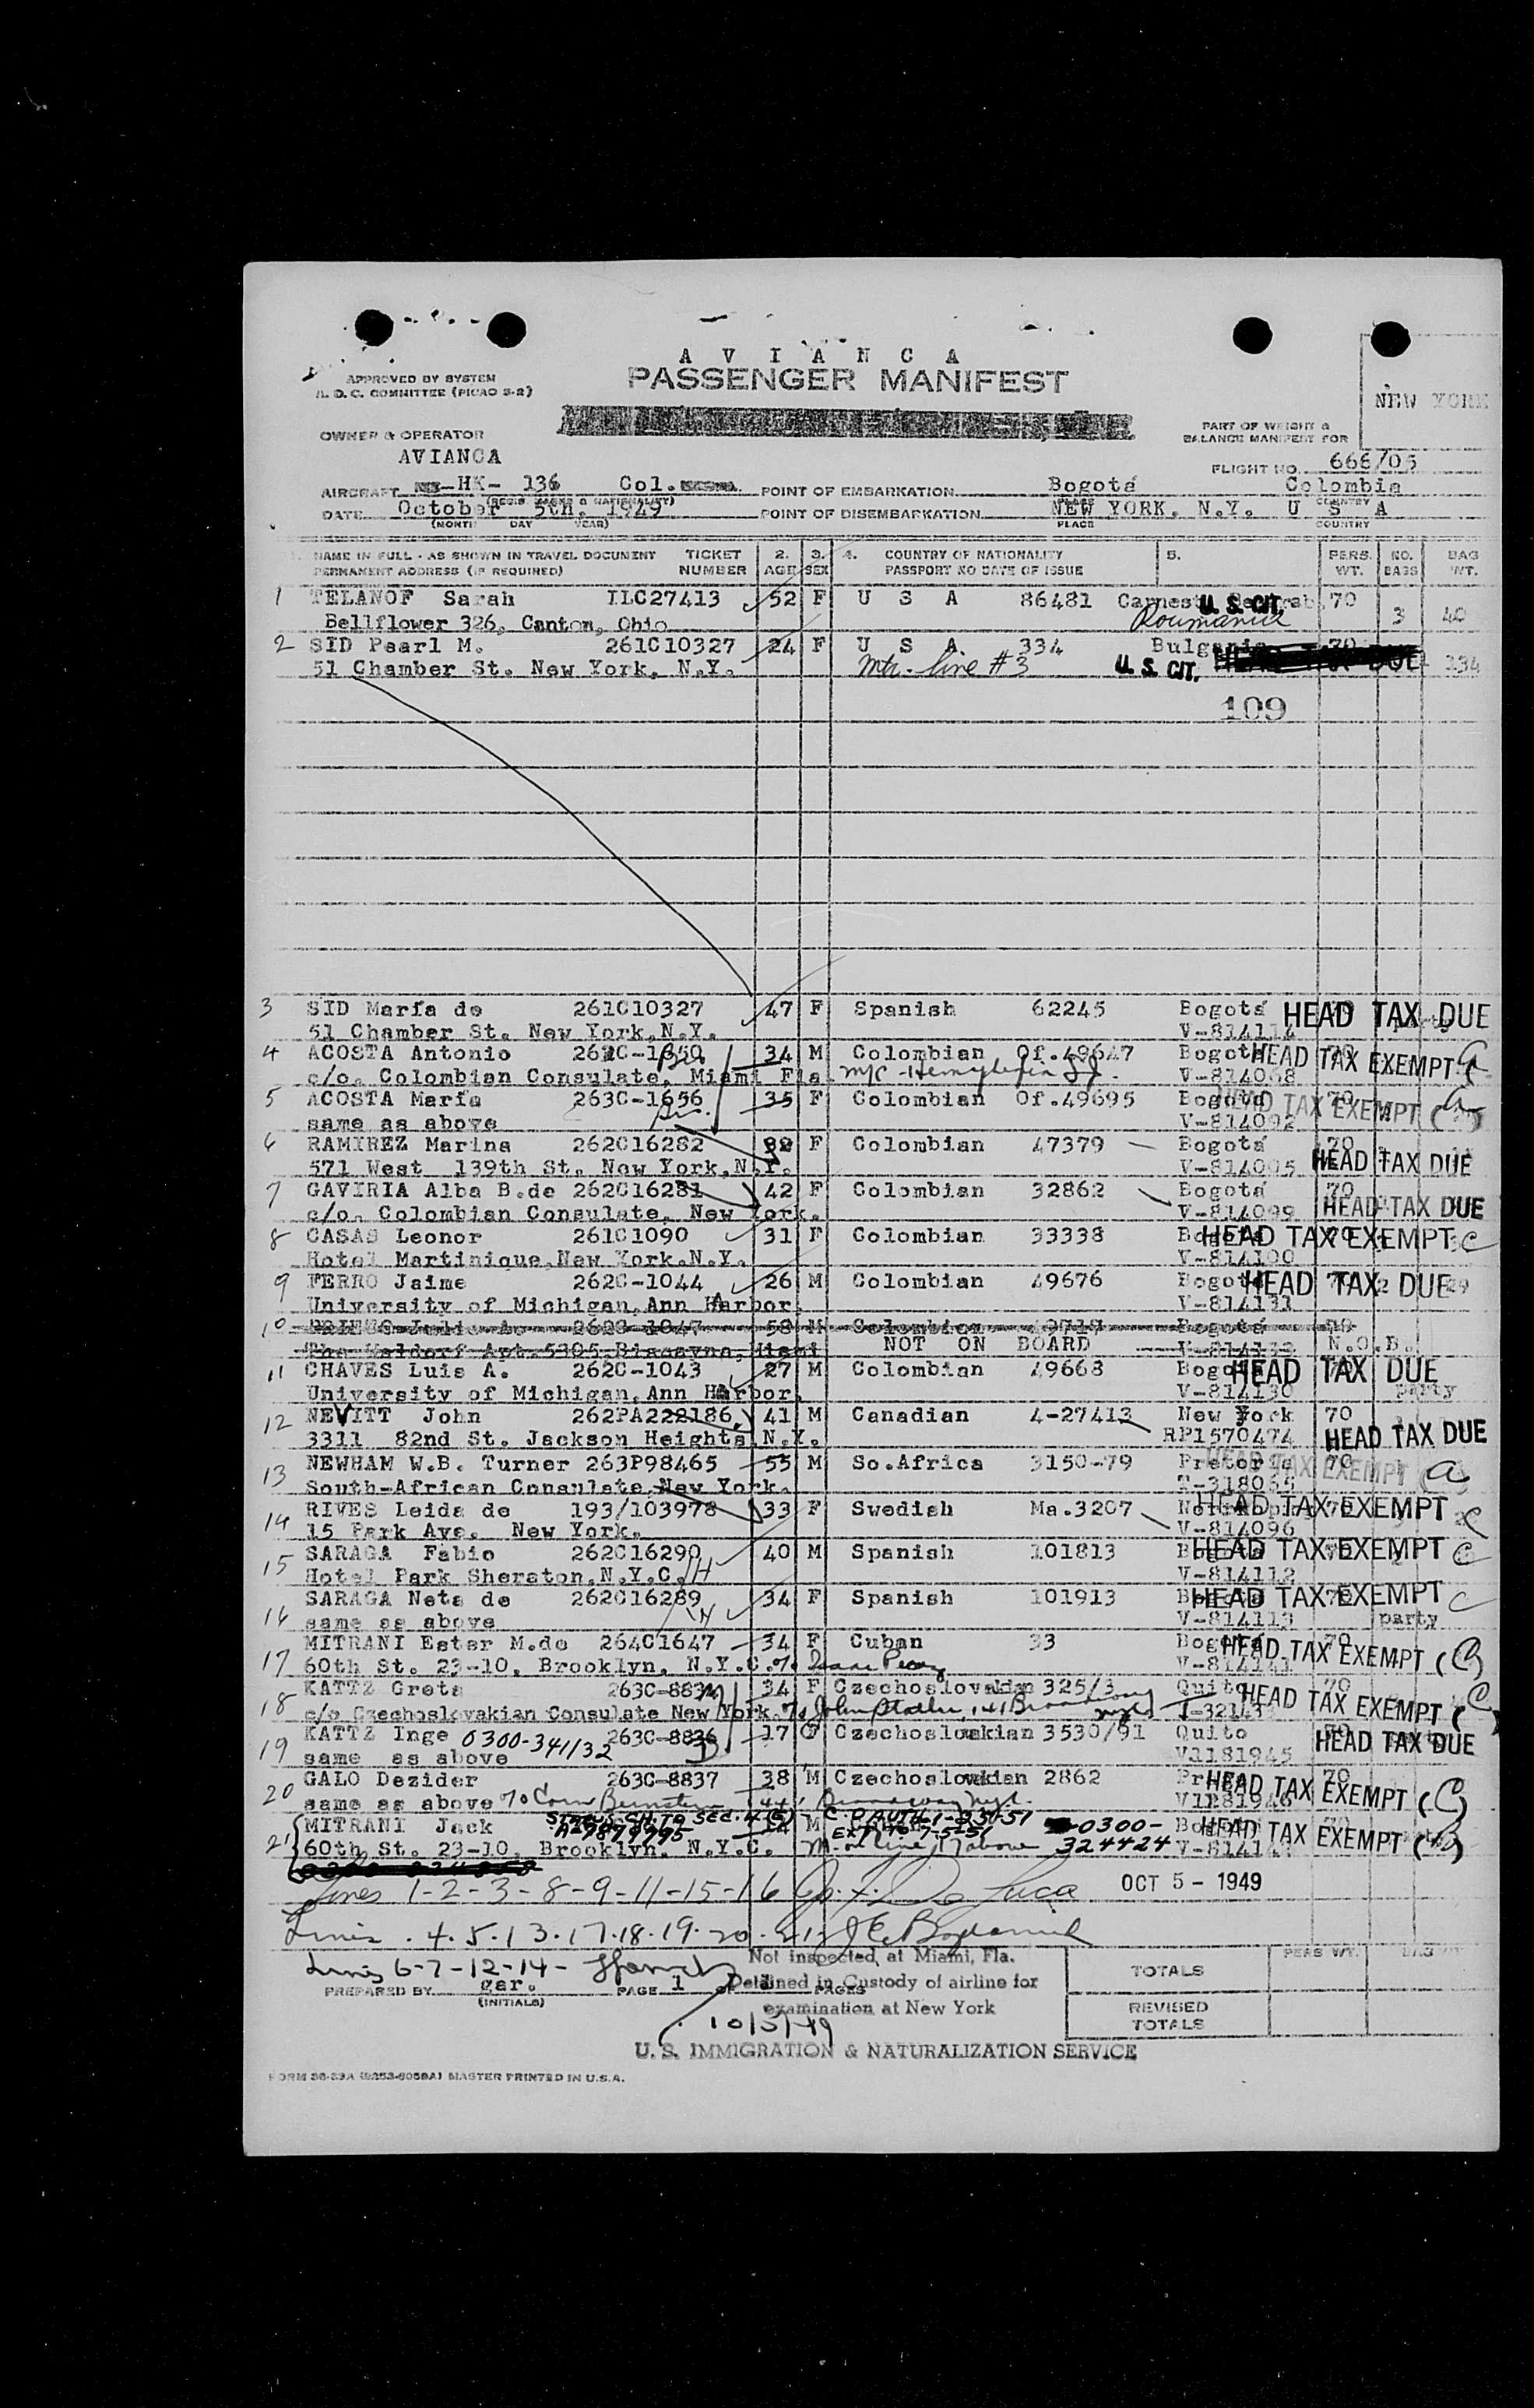 A V I A N C A
PASSENGER MANIFEST
APPROVED BY SYSTEM
A. D. C. COMMITTEE (PICAO S-2)
NEW YORK
OWNER & OPERATOR
AVIANCA
PART OF WEIGHT &
BALANCE MANIFEST FOR
FLIGHT NO. 666/05
AIRCRAFT HK- 136 Col. POINT OF EMBARKATION Bogotá Colombia
(REGIS MARKS & NATIONALITY) PLACE COUNTRY
DATE October 5th. 1949 POINT OF DISEMBARKATION NEW YORK. N.Y. U S A
(MONTH DAY YEAR) PLACE COUNTRY
1. NAME IN FULL - AS SHOWN IN TRAVEL DOCUMENT TICKET 2. 3. 4. COUNTRY OF NATIONALITY 5. PERS. NO. BAG
PERMANENT ADDRESS (IF REQUIRED) NUMBER AGE SEX PASSPORT NO DATE OF ISSUE WT. BAGS WT.
1 TELANOF Sarah ILC27413 52 F U S A 86481 U. S. CIT. 70
Bellflower 326, Canton, Ohio Roumania 3 40
2 SID Pearl M. 261C10327 24 F U S A. 334 Bulgaria 70
51 Chamber St. New York, N.Y. line #3 U. S. CIT. HEAD TAX DUE 334
109
3 SID María de 261C10327 47 F Spanish 62245 Bogotá HEAD TAX DUE
51 Chamber St. New York,N.Y. V-814114
4 ACOSTA Antonio 34 M Colombian Of.49647 Bogotá HEAD TAX EXEMPT
c/o. Colombian Consulate, Miami Fla. V-814068
5 ACOSTA María 263C-1656 35 F Colombian Of.49695 Bogotá HEAD TAX EXEMPT
same as above V-814092
6 RAMIREZ Marina 262C16282 F Colombian 47379 Bogotá 70
571 West 139th St. New York,N.Y. V-814095 HEAD TAX DUE
7 GAVIRIA Alba B.de 262C16281 42 F Colombian 32862 Bogotá 70
c/o. Colombian Consulate, New York. V-814099 HEAD TAX DUE
8 CASAS Leonor 261C1090 31 F Colombian 33338 Bogotá HEAD TAX EXEMPT C
Hotel Martinique,New York.N.Y. V-814100
9 FERRO Jaime 262C-1044 26 M Colombian 49676 Bogotá HEAD TAX DUE 29
University of Michigan,Ann Harbor. V-814131
10 58 M Colombian 49717 Bogotá 70
The Waldorf Apt.5305 Biscayna,Miami NOT ON BOARD N.O.B.
11 CHAVES Luis A. 262C-1043 27 M Colombian 49668 Bogotá HEAD TAX DUE
University of Michigan,Ann Harbor. V-814130 party
12 NEVITT John 262PA222186 41 M Canadian 4-27413 New York 70
3311 82nd St. Jackson Heights N.Y. RP1570474 HEAD TAX DUE
13 NEWHAM W.B. Turner 263P98465 55 M So.Africa 3150-79 Pretoria 70 HEAD TAX EXEMPT a
South-African Consulate,New York. T-318065
14 RIVES Leida de 193/103978 33 F Swedish Ma.3207 HEAD TAX EXEMPT C
15 Park Ave. New York. V-814096
15 SARAGA Fabio 262C16290 40 M Spanish 101813 Bogotá HEAD TAX EXEMPT C
Hotel Park Sheraton,N.Y.C. V-814112
16 SARAGA Neta de 262C16289 34 F Spanish 101913 Bogotá HEAD TAX EXEMPT C
same as above V-814113 party
17 MITRANI Ester M.de 264C1647 34 F Cuban 33 Bogotá HEAD TAX EXEMPT (C)
60th St. 23-10, Brooklyn, N.Y.C. V-814141
18 KATTZ Greta 34 F Czechoslovakian 325/3 Quito 70 HEAD TAX EXEMPT (C)
c/o Czechoslovakian Consulate New York
19 KATTZ Inge 0300-341132 263C-8836 17 F Czechoslovakian 3530/91 Quito HEAD TAX DUE
same as above V1181945
20 GALO Dezider 263C-8837 38 M Czechoslovakian 2862 70 HEAD TAX EXEMPT (C)
same as above Broadway
21 MITRANI Jack STATUS CH. TO SEC. 4(E) M 0300- HEAD TAX EXEMPT
60th St. 23-10, Brooklyn. N.Y.C. A-7879795 324424
Lines 1-2-3-8-9-11-15-16 OCT 5 - 1949
Lines . 4.5.13.17.18.19.20.21
Lines 6-7-12-14-
Not inspected at Miami, Fla.
Detained in Custody of airline for
examination at New York
PREPARED BY gar. PAGE 1 OF PAGES
(INITIALS)
10/5/49
PERS WT. BAG WT
TOTALS
REVISED
TOTALS
U. S. IMMIGRATION & NATURALIZATION SERVICE
FORM 36-39A MASTER PRINTED IN U.S.A.